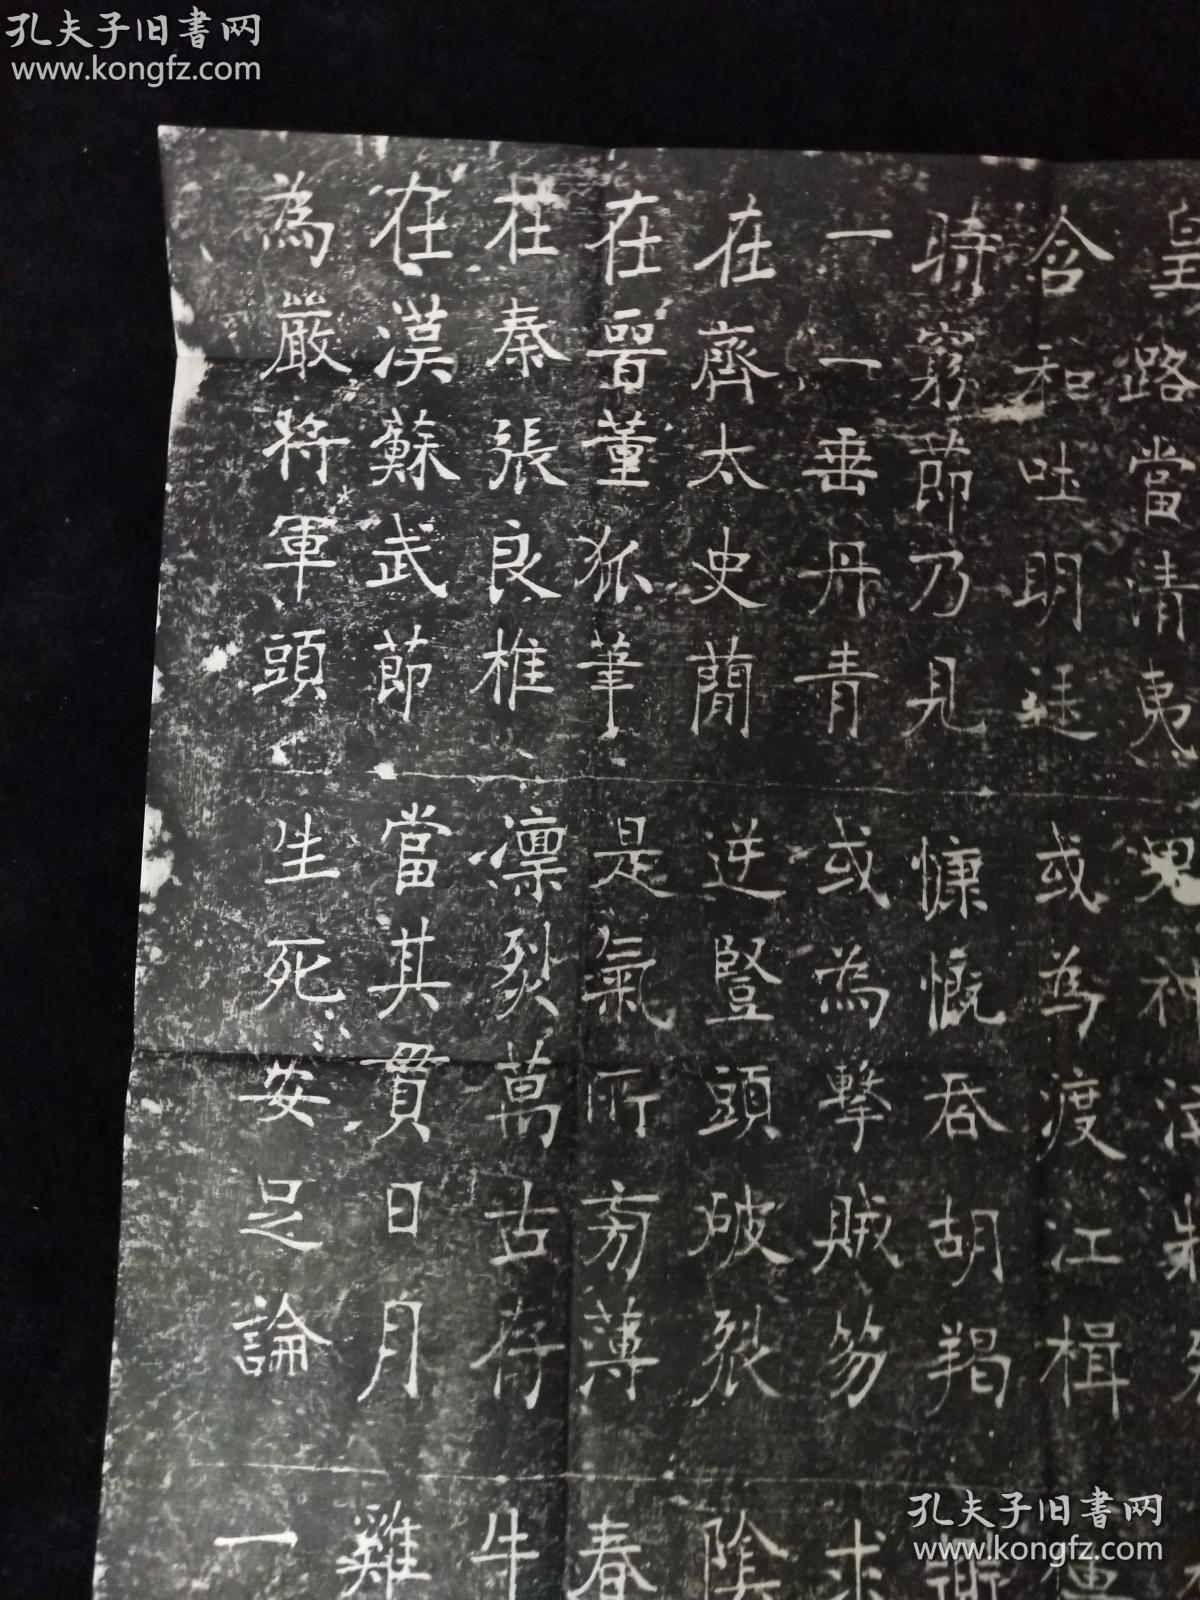 孔夫子旧書网
www.kongfz.com
皇路當清夷
含和吐明廷
時窮節乃見
一一垂丹青
在齊太史簡
在晉董狐筆
在秦張良椎
在漢蘇武節
為嚴將軍頭
鬼神泣壯烈
或為渡江楫
慷慨吞胡羯
或為擊賊笏
逆豎頭破裂
是氣所旁薄
凜烈萬古存
當其貫日月
生死安足論
求
陰
春
牛
雞
一
孔夫子旧書网
www.kongfz.com